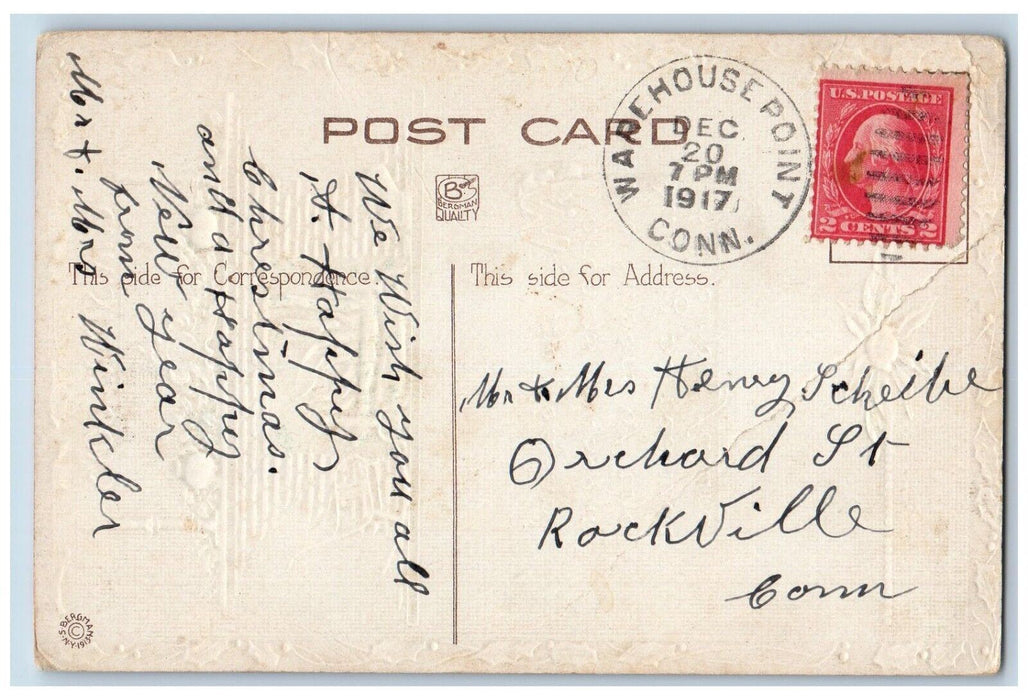 POST CARD
WAREHOUSE POINT
DEC
20
7 PM
1917
CONN.
U.S. POSTAGE
2 CENTS 2
B
BERGMAN
QUALITY
This side for Correspondence.
This side for Address.
We Wish you all
A Happy
Christmas.
and a Happy
New year
from
Mr & Mrs Winkler
Mr & Mrs Henry Scheibe
Orchard St
RockVille
Conn
S. BERGMAN
N.Y. 1913
©